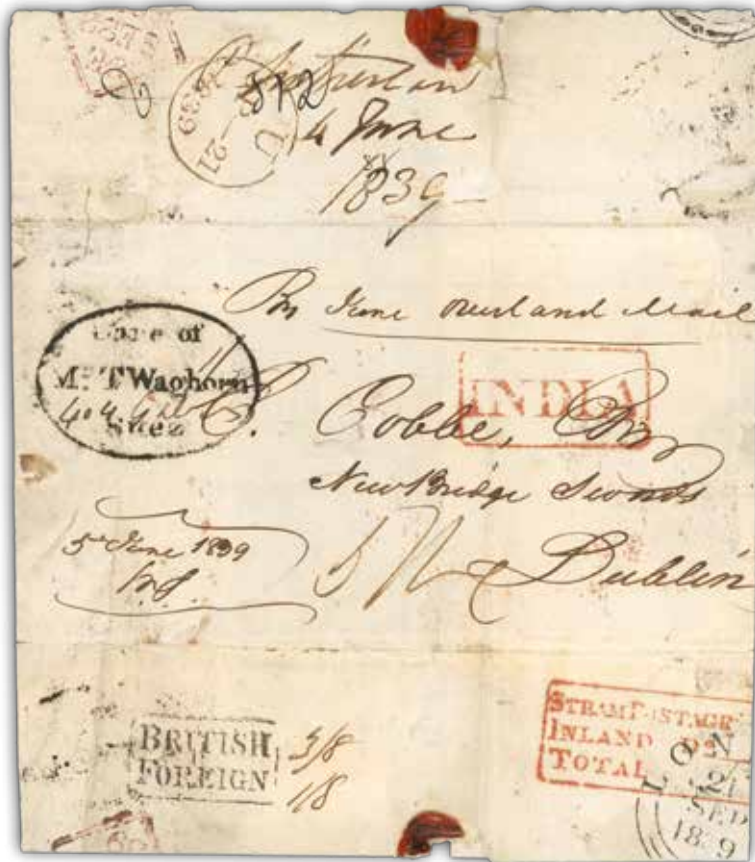 4 June
1839
Pr June Overland Mail
Care of
Mr. T Waghorn
Suez
INDIA
C. Cobbe, Esq
NewBridge Swords
Dublin
5 June 1839
BRITISH
FOREIGN
3/8
1/8
STEAM POSTAGE
INLAND Do
TOTAL
LON
21
SEP
1839